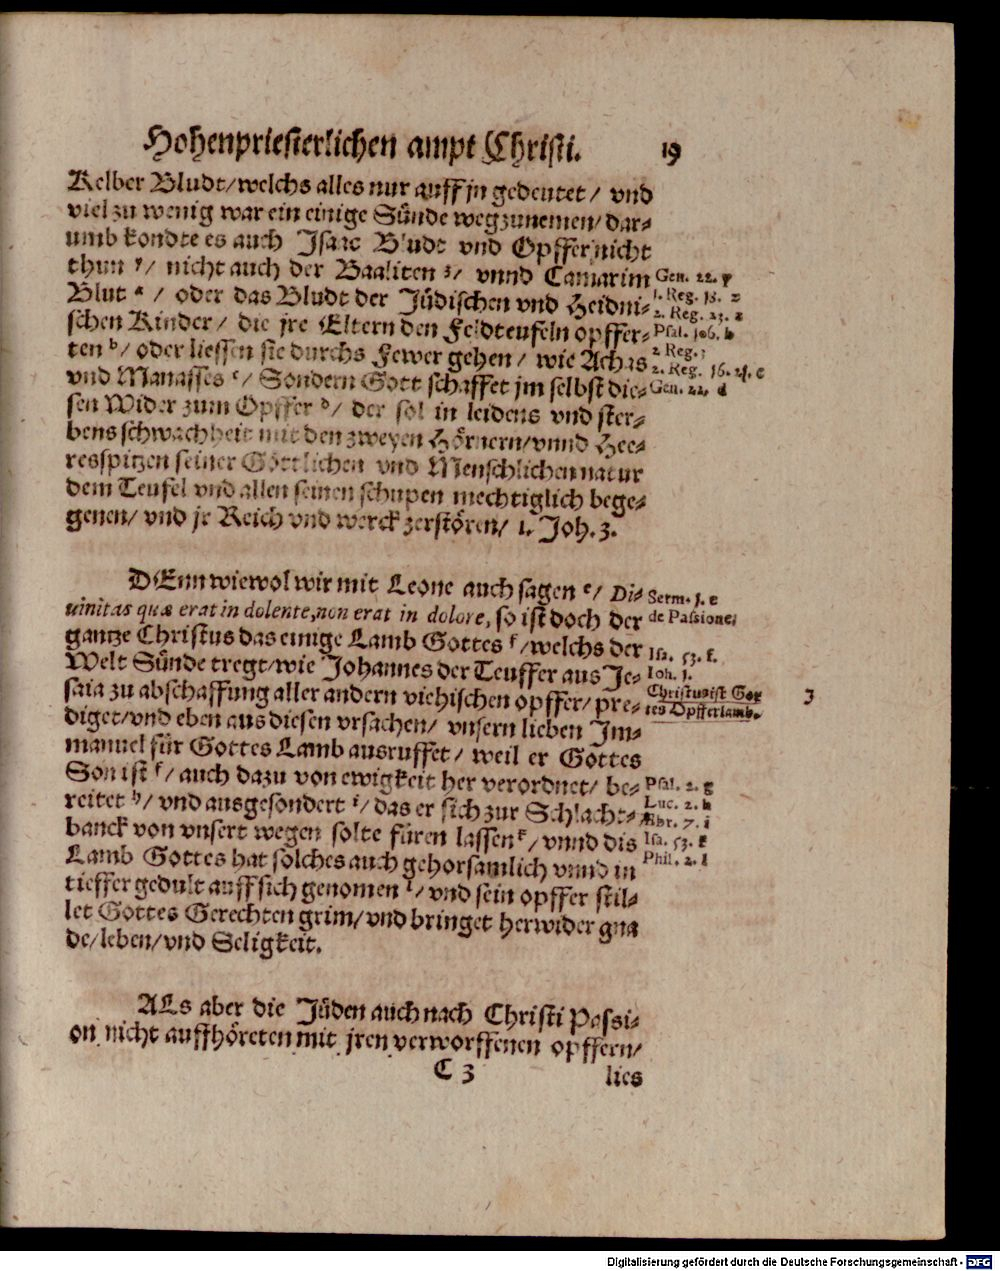 Hohenpriesterlichen ampt Christi. 19
Kelber Bludt/welchs alles nur auff jn gedeutet/ vnd
viel zu wenig war ein einige Sünde wegzunemen/ dar-
umb kondte es auch Isaac Bludt vnd Opffer nicht
thun y/ nicht auch der Baaliten z/ vnnd Camarim
Blut a/ oder das Bludt der Jüdischen vnd Heidni-
schen Kinder/ die jre Eltern den Feldteufeln opffer-
ten b/ oder liessen sie durchs Fewer gehen/ wie Achas
vnd Manasses c/ Sondern Gott schaffet jm selbst die-
sen Wider zum Opffer d/ der sol in leidens vnd ster-
bens schwachheit mit den zweyen Hörnern/vnnd Hee-
resspitzen seiner Göttlichen vnd Menschlichen natur
dem Teufel vnd allen seinen schupen mechtiglich bege-
genen/ vnd jr Reich vnd werck zerstören/ 1. Joh. 3.
Gen. 22. y
1. Reg. 18. z
2. Reg. 23. a
Psal. 106. b
2. Reg.
2. Reg. 16. 21. c
Gen. 22. d
DEnn wiewol wir mit Leone auch sagen e/ Di-
uinitas quæ erat in dolente, non erat in dolore, so ist doch der
gantze Christus das einige Lamb Gottes f/welchs der
Welt Sünde tregt/wie Johannes der Teuffer aus Je-
saia zu abschaffung aller andern viehischen opffer/ pre-
diget/vnd eben aus diesen vrsachen/ vnsern lieben Im-
manuel für Gottes Lamb ausruffet/ weil er Gottes
Son ist g/ auch dazu von ewigkeit her verordnet/ be-
reitet h/ vnd ausgesondert i/ das er sich zur Schlacht-
banck von vnsert wegen solte füren lassen k/ vnnd dis
Lamb Gottes hat solches auch gehorsamlich vnnd in
tieffer gedult auff sich genomen l/ vnd sein opffer stil-
let Gottes Gerechten grim/vnd bringet herwider gna
de/leben/vnd Seligkeit.
Serm. 1. e
de Passione,
Isa. 53. f.
Ioh. 1.
Christus ist Got
tes Opfferlamb.
3
Psal. 2. g
Luc. 2. h
Ebr. 7. i
Isa. 53. k
Phil. 2. l
ALs aber die Jüden auch nach Christi Passi-
on nicht auffhöreten mit jren verworffenen opffern/
C 3 lies
Digitalisierung gefördert durch die Deutsche Forschungsgemeinschaft - DFG